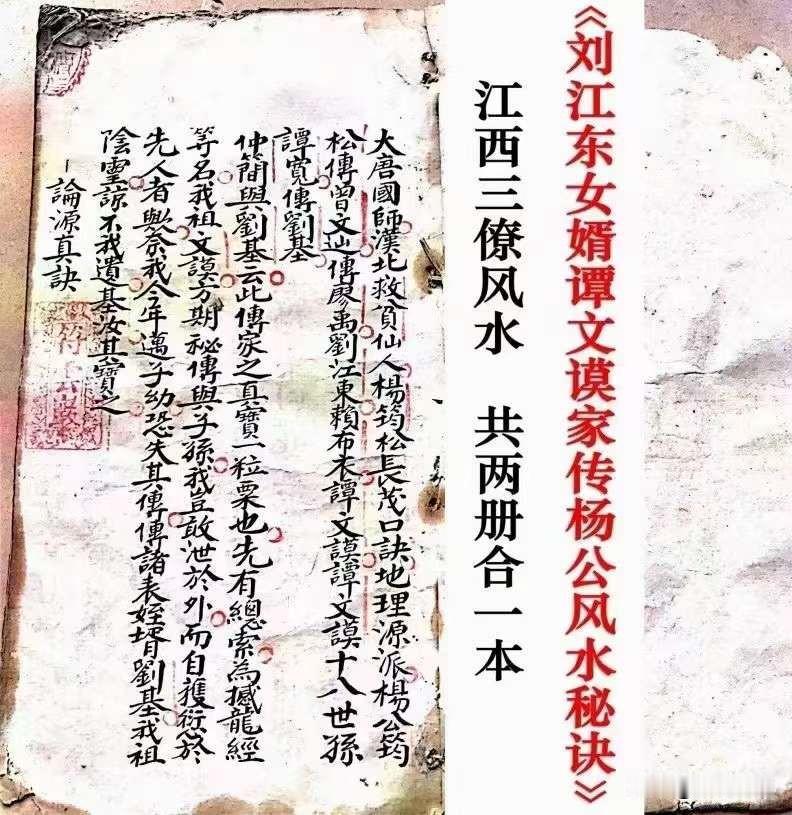 《刘江东女婿谭文谟家传杨公风水秘诀》
江西三僚风水 共两册合一本
大唐國師漢北救貧仙人楊筠松長茂口訣地理源派楊公筠
松傳曾文辿傳廖禹劉江東賴布衣譚文謨譚文謨十八世孫
譚寬傳劉基
仲簡與劉基云此傳家之真寶一粒粟也先有總索為撼龍經
等名我祖文謨方期秘傳與子孫我豈敢泄於外而自獲衍於
先人者與奈我今年邁子幼恐失其傳傳諸表姪壻劉基我祖
陰靈諒不我遺基汝其寶之
一論源真訣